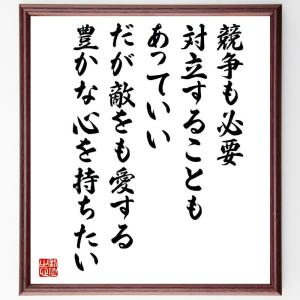 競争も必要
対立することも
あっていい
だが敵をも愛する
豊かな心を持ちたい